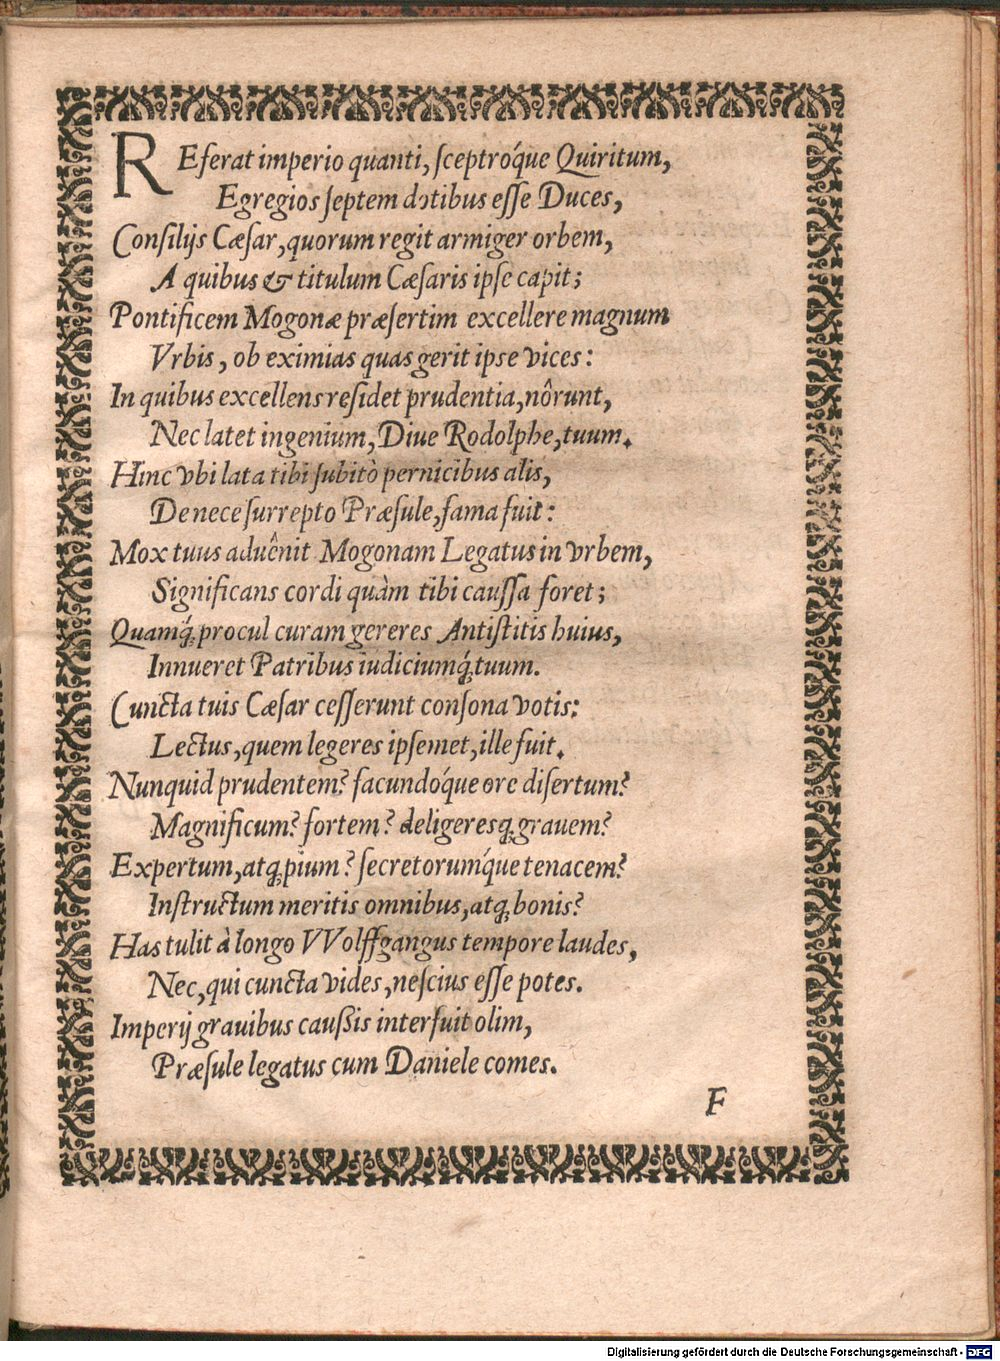 REferat imperio quanti, ſceptróque Quiritum,
Egregios ſeptem dotibus eſſe Duces,
Conſilijs Cæſar, quorum regit armiger orbem,
A quibus & titulum Cæſaris ipſe capit;
Pontificem Mogonæ præſertim excellere magnum
Vrbis, ob eximias quas gerit ipse vices:
In quibus excellens reſidet prudentia, nôrunt,
Nec latet ingenium, Diue Rodolphe, tuum.
Hinc vbi lata tibi ſubitò pernicibus alis,
De nece ſurrepto Præſule, fama fuit:
Mox tuus aduênit Mogonam Legatus in vrbem,
Significans cordi quàm tibi cauſſa foret;
Quamq́; procul curam gereres Antiſtitis huius,
Innueret Patribus iudiciumq́; tuum.
Cuncta tuis Cæſar ceſſerunt conſona votis:
Lectus, quem legeres ipſemet, ille fuit.
Nunquid prudentem? facundóque ore diſertum?
Magnificum? fortem? deligeresq; grauem?
Expertum, atq; pium? ſecretorumq́ue tenacem?
Inſtructum meritis omnibus, atq; bonis?
Has tulit à longo VVolffgangus tempore laudes,
Nec, qui cuncta vides, neſcius eſſe potes.
Imperij grauibus caußis interfuit olim,
Præſule legatus cum Daniele comes.
F
Digitalisierung gefördert durch die Deutsche Forschungsgemeinschaft - DFG